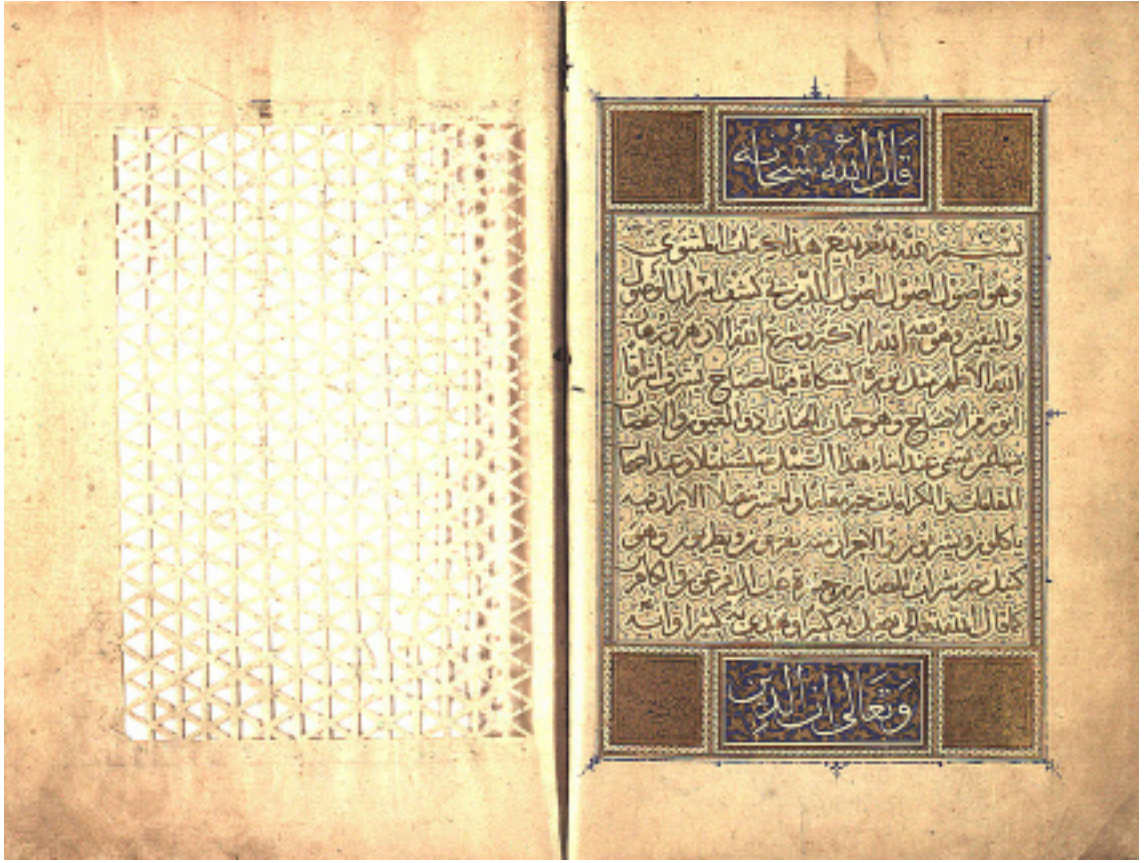 قَالَ اللّٰه سُبْحَانَه
هذا كتاب المثنوى
وهو اصول اصول اصول الدين فى كشف اسرار الوصول
واليقين وهو فقه الله الاكبر وشرع الله الازهر وبرهان
الله الاظهر مثل نوره كمشكاة فيها مصباح يشرق اشراقا
انور من الاصباح وهو جنان الجنان ذو العيون والاغصان
عند ابناء هذا السبيل سلسبيلا وعند اصحاب
المقامات والكرامات خير مقاما واحسن مقيلا الابرار فيه
ياكلون ويشربون والاحرار منه يفرحون ويطربون وهو
كنيل مصر شراب للصابرين حسرة على آل فرعون والكافرين
كما قال الله تعالى يضل به كثيرا ويهدى به كثيرا وانه
وَتَعَالى ان الذين